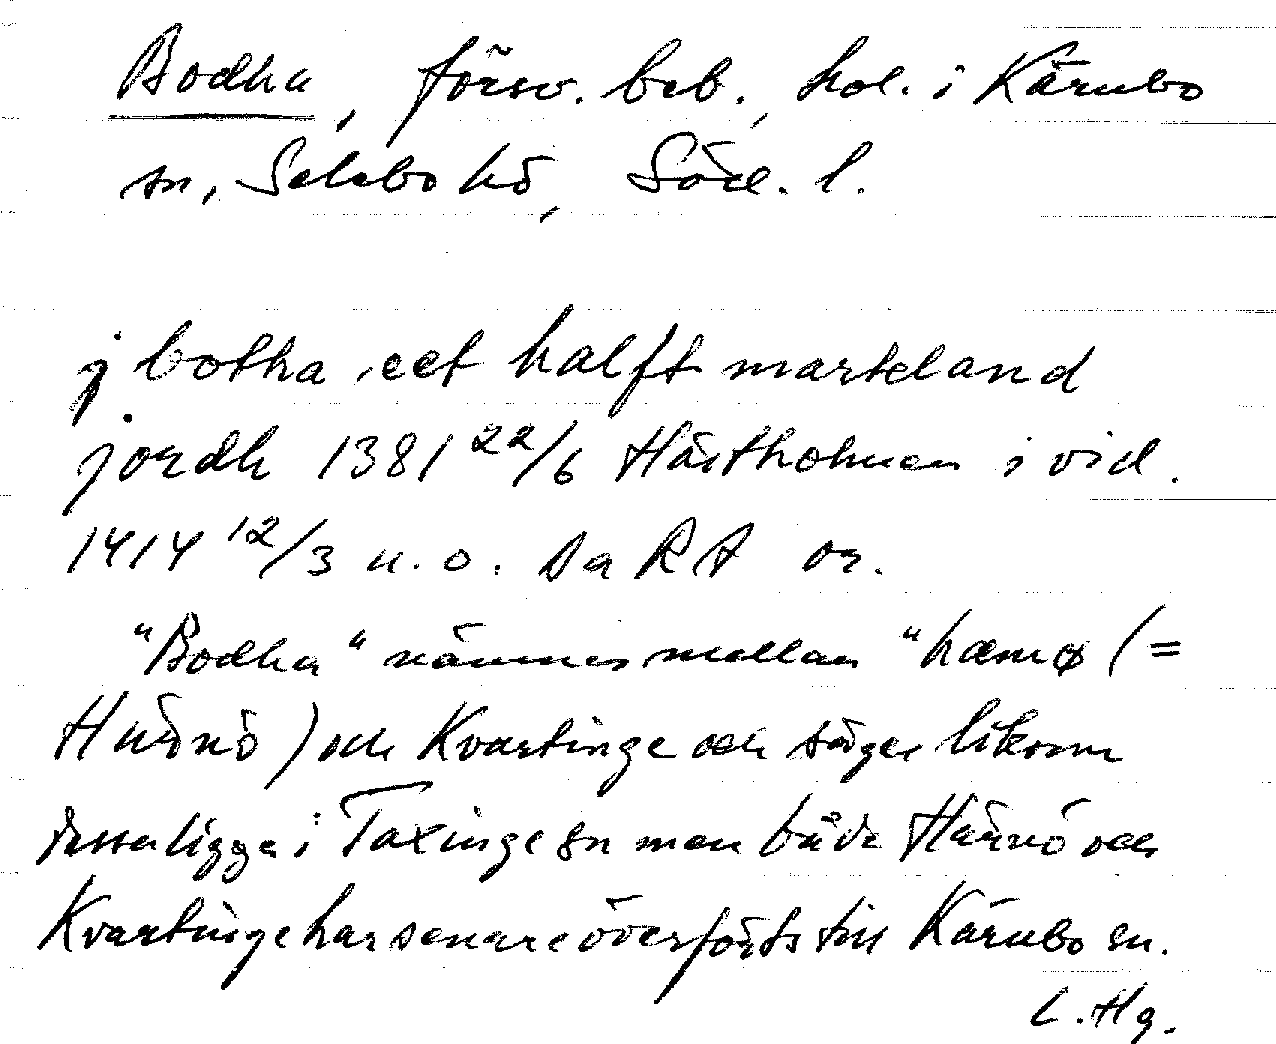 Bodha, försv. beb., trol. i Kärnbo
sn, Selebo hd, Söd. l.
j botha, eet halft markland
jordh 1381 22/6 Hästholmen i vid.
1414 12/3 u.o. Sa RA or.
"Bodha" nämnes mellan "hærnø (=
Härnö) och Kvartinge och säges liksom
dessa ligga i Taxinge sn men både Härnö och
Kvartinge har senare överförts till Kärnbo sn.
L. Hg.